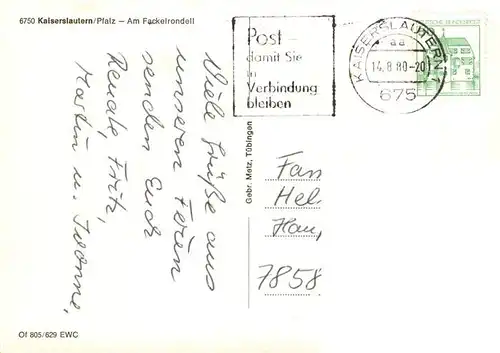 6750 Kaiserslautern/Pfalz – Am Fackelrondell
Viele Grüße aus
unseren Ferien
senden Euch
Renate, Fritz,
Martin u. Ivonne,
Post –
damit Sie
in
Verbindung
bleiben
KAISERSLAUTERN 1
aa
14.8.80-20
675
DEUTSCHE BUNDESPOST
Gebr. Metz, Tübingen
Fam
Hel
Hau
7858
Of 805/629 EWC